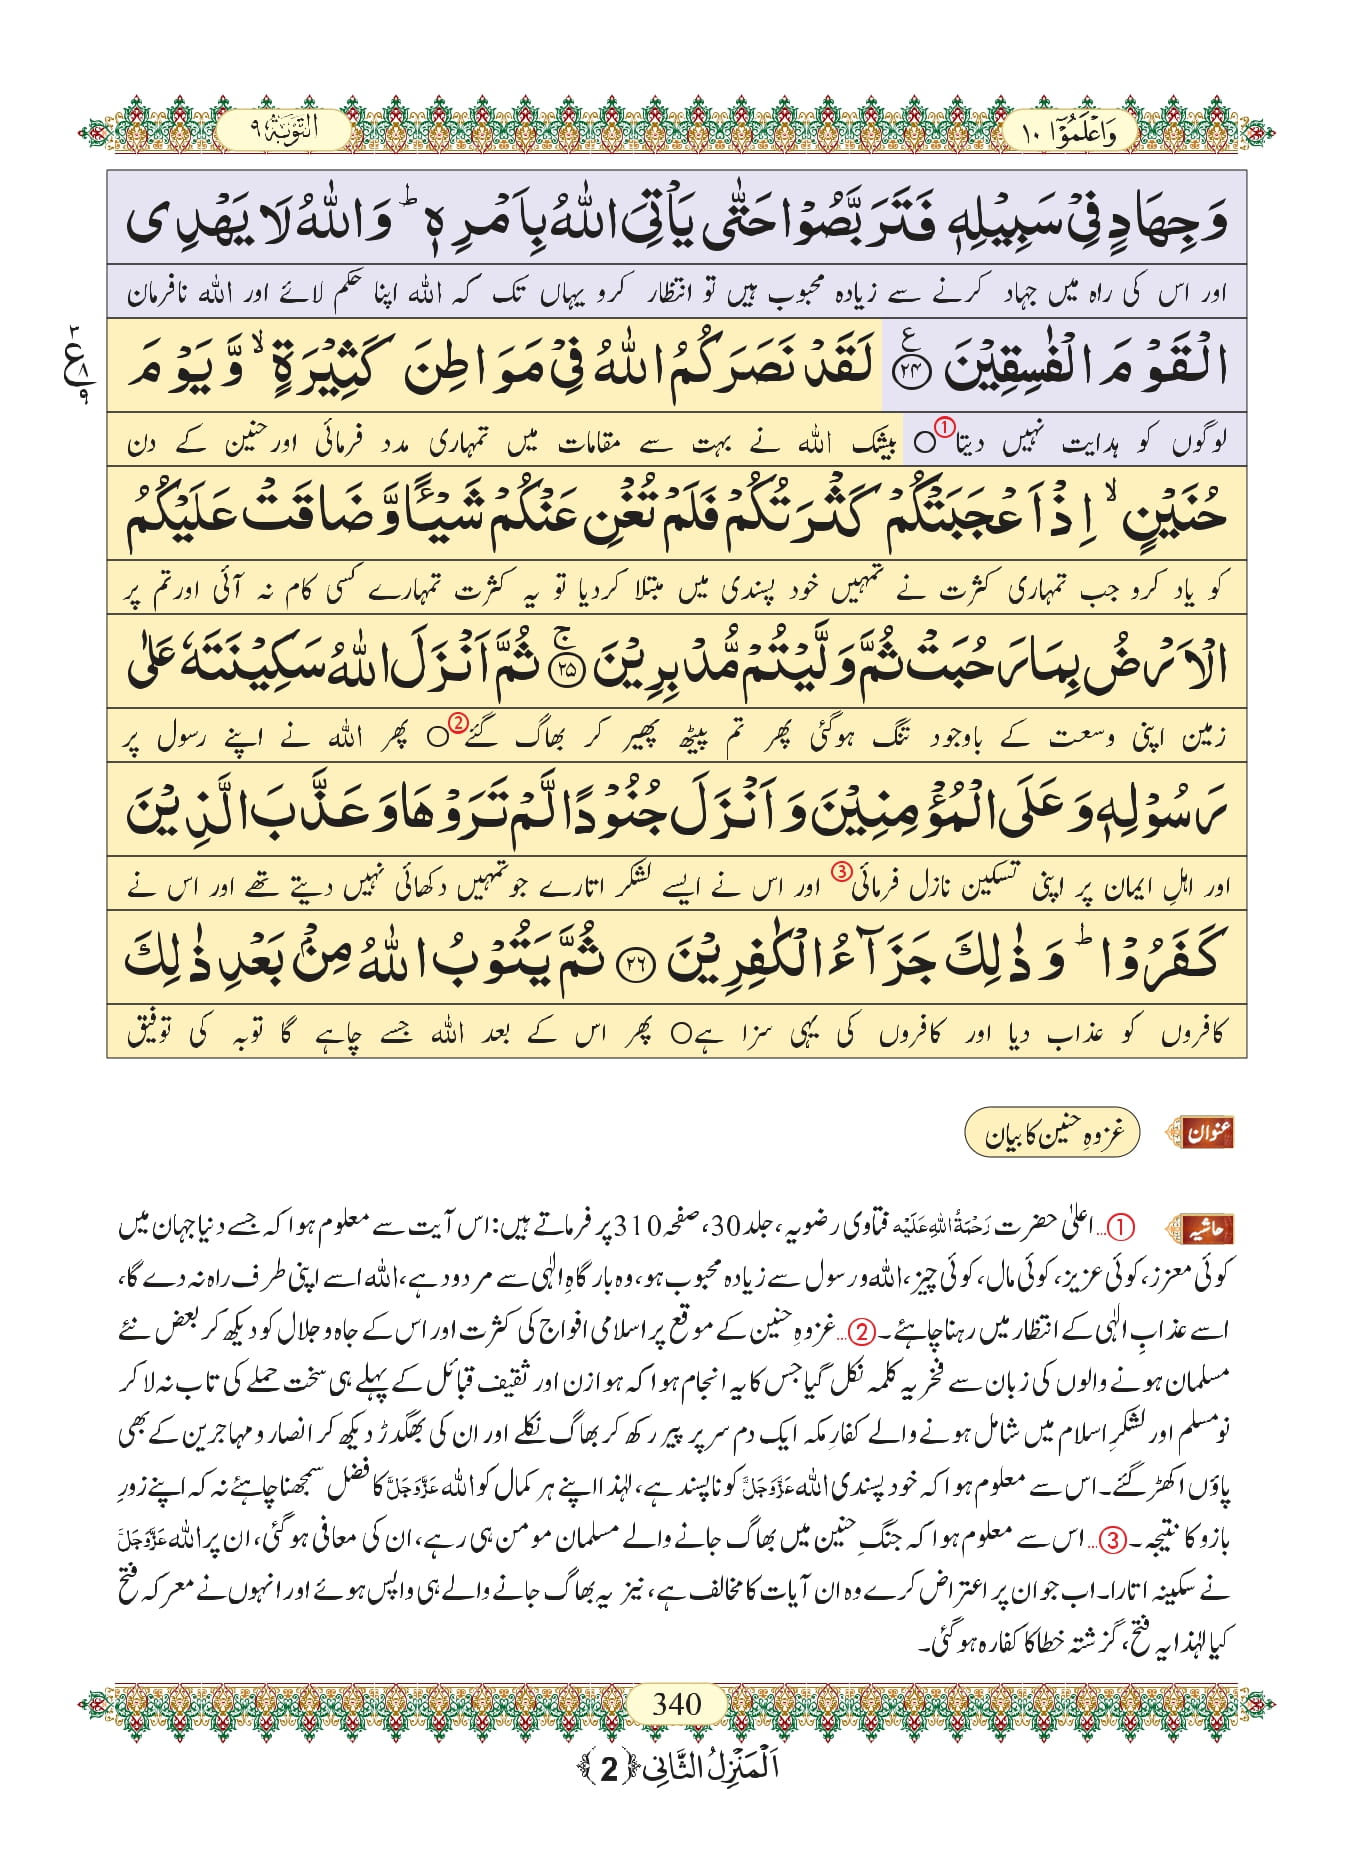 وَاعْلَمُوْۤا ۱۰
التَّوْبَة ۹
وَ جِهَادٍ فِیْ سَبِیْلِهٖ فَتَرَبَّصُوْا حَتّٰى یَاْتِیَ اللّٰهُ بِاَمْرِهٖؕ وَ اللّٰهُ لَا یَهْدِی
اور اس کی راہ میں جہاد کرنے سے زیادہ محبوب ہیں تو انتظار کرو یہاں تک کہ اللہ اپنا حکم لائے اور اللہ نافرمان
الْقَوْمَ الْفٰسِقِیْنَ ﴿۲۴﴾ ع لَقَدْ نَصَرَكُمُ اللّٰهُ فِیْ مَوَاطِنَ كَثِیْرَةٍۙ وَّ یَوْمَ
۳ ع ۸ ۹
لوگوں کو ہدایت نہیں دیتا① ○ بیشک اللہ نے بہت سے مقامات میں تمہاری مدد فرمائی اور حنین کے دن
حُنَیْنٍۙ اِذْ اَعْجَبَتْكُمْ كَثْرَتُكُمْ فَلَمْ تُغْنِ عَنْكُمْ شَیْــٴًـا وَّ ضَاقَتْ عَلَیْكُمُ
کو یاد کرو جب تمہاری کثرت نے تمہیں خود پسندی میں مبتلا کردیا تو یہ کثرت تمہارے کسی کام نہ آئی اور تم پر
الْاَرْضُ بِمَا رَحُبَتْ ثُمَّ وَلَّیْتُمْ مُّدْبِرِیْنَ ﴿۲۵﴾ ج ثُمَّ اَنْزَلَ اللّٰهُ سَكِیْنَتَهٗ عَلٰى
زمین اپنی وسعت کے باوجود تنگ ہوگئی پھر تم پیٹھ پھیر کر بھاگ گئے② ○ پھر اللہ نے اپنے رسول پر
رَسُوْلِهٖ وَ عَلَى الْمُؤْمِنِیْنَ وَ اَنْزَلَ جُنُوْدًا لَّمْ تَرَوْهَا وَ عَذَّبَ الَّذِیْنَ
اور اہلِ ایمان پر اپنی تسکین نازل فرمائی③ اور اس نے ایسے لشکر اتارے جو تمہیں دکھائی نہیں دیتے تھے اور اس نے
كَفَرُوْاؕ وَ ذٰلِكَ جَزَآءُ الْكٰفِرِیْنَ ﴿۲۶﴾ ثُمَّ یَتُوْبُ اللّٰهُ مِنْۢ بَعْدِ ذٰلِكَ
کافروں کو عذاب دیا اور کافروں کی یہی سزا ہے○ پھر اس کے بعد اللہ جسے چاہے گا توبہ کی توفیق
عنوان غزوہِ حنین کا بیان
حاشیہ ①...اعلیٰ حضرت رَحْمَۃُ اللہِ عَلَیْہ فتاوی رضویہ، جلد 30، صفحہ 310 پر فرماتے ہیں: اس آیت سے معلوم ہوا کہ جسے دنیا جہان میں
کوئی معزز، کوئی عزیز، کوئی مال، کوئی چیز، اللہ و رسول سے زیادہ محبوب ہو، وہ بارگاہِ الٰہی سے مردود ہے، اللہ اسے اپنی طرف راہ نہ دے گا،
اسے عذابِ الٰہی کے انتظار میں رہنا چاہئے۔ ②...غزوہِ حنین کے موقع پر اسلامی افواج کی کثرت اور اس کے جاہ و جلال کو دیکھ کر بعض نئے
مسلمان ہونے والوں کی زبان سے فخریہ کلمہ نکل گیا جس کا یہ انجام ہوا کہ ہوازن اور ثقیف قبائل کے پہلے ہی سخت حملے کی تاب نہ لا کر
نومسلم اور لشکرِ اسلام میں شامل ہونے والے کفارِ مکہ ایک دم سر پر پیر رکھ کر بھاگ نکلے اور ان کی بھگدڑ دیکھ کر انصار و مہاجرین کے بھی
پاؤں اکھڑ گئے۔ اس سے معلوم ہوا کہ خود پسندی اللہ عَزَّوَجَلَّ کو ناپسند ہے، لہٰذا اپنے ہر کمال کو اللہ عَزَّوَجَلَّ کا فضل سمجھنا چاہئے نہ کہ اپنے زورِ
بازو کا نتیجہ۔ ③...اس سے معلوم ہوا کہ جنگِ حنین میں بھاگ جانے والے مسلمان مومن ہی رہے، ان کی معافی ہوگئی، ان پر اللہ عَزَّوَجَلَّ
نے سکینہ اتارا۔ اب جو ان پر اعتراض کرے وہ ان آیات کا مخالف ہے، نیز یہ بھاگ جانے والے ہی واپس ہوئے اور انہوں نے معرکہ فتح
کیا لہٰذا یہ فتح، گزشتہ خطا کا کفارہ ہوگئی۔
340
اَلْمَنْزِلُ الثَّانِی ﴿2﴾